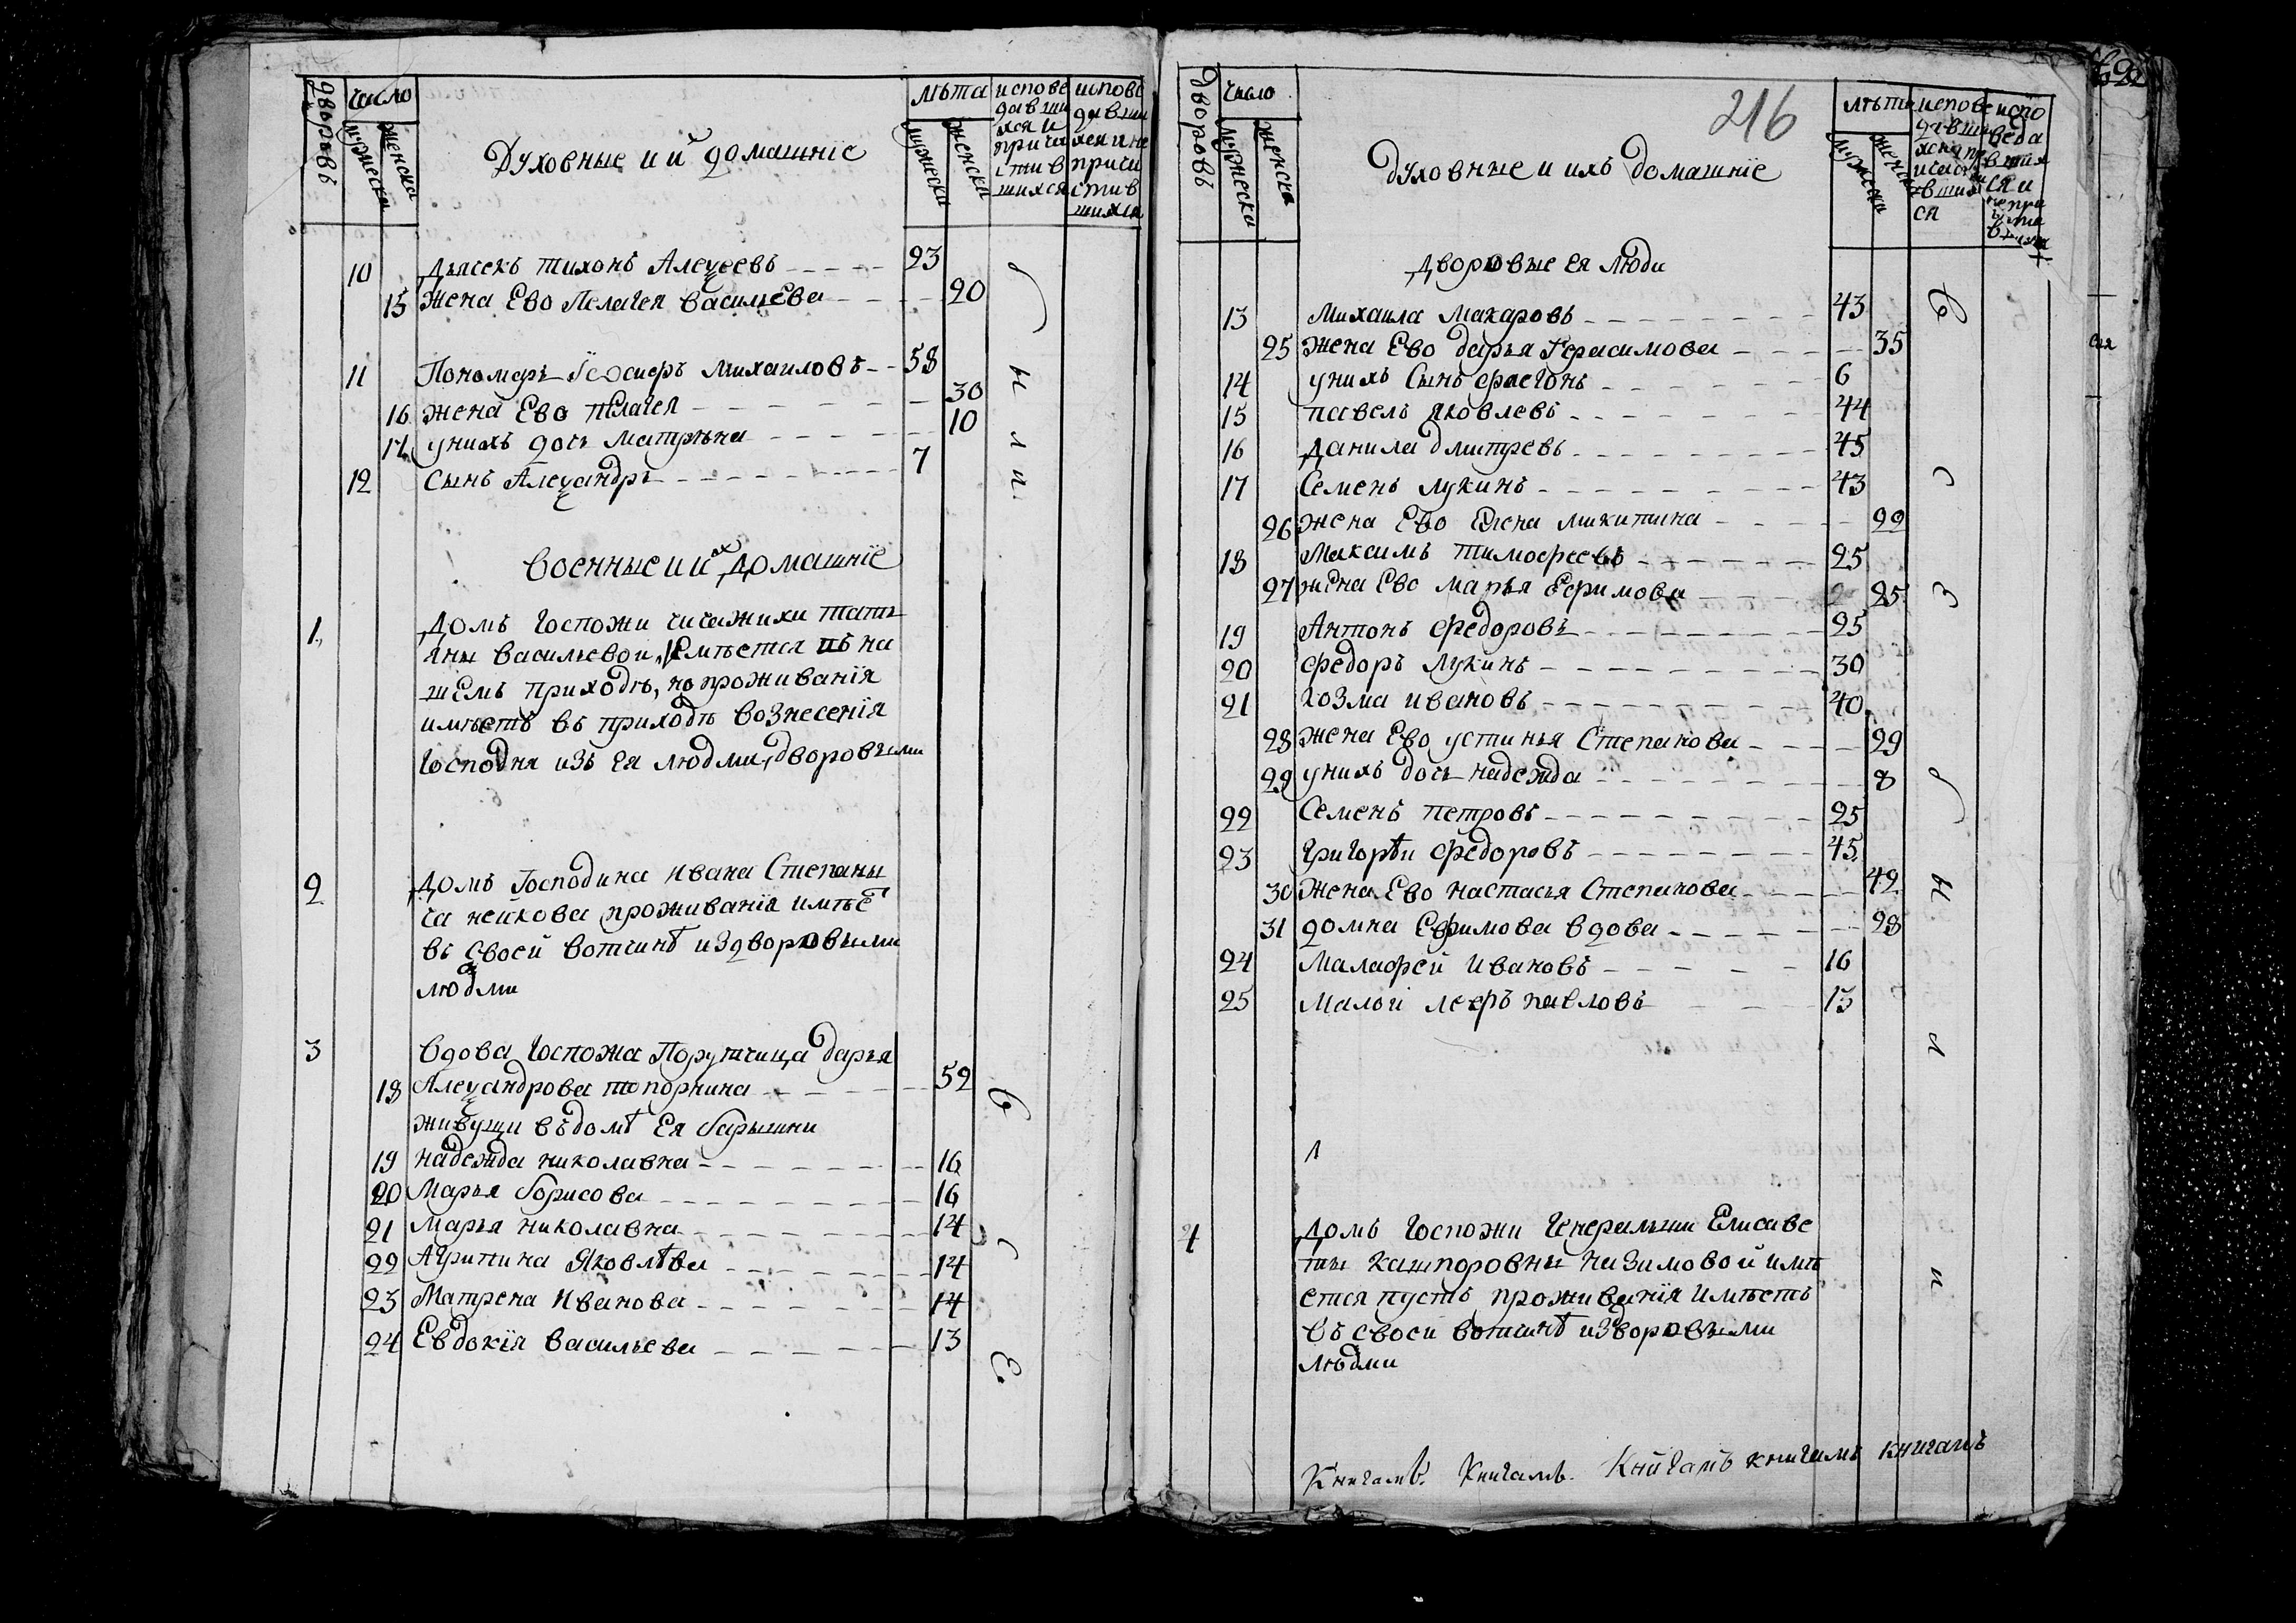 дворовъ
число
мужеска
женска
Духовные и ий домашніе
лѣта
мужеска
женска
испове
давши
хся и
прича
стив
шихся
испове
давши
хся и не
прича
стив
шихся
10 Дьячекъ Тихонъ Алеѯеевъ 23
15 жена Ево Пелагея васильева 20
11 Пономарь Михаиловъ 58
16 жена Ево Пелагея 30
17 унихъ дочь матрѣна 10
12 Сынъ Алеѯандръ 7
Военные и иⷯ домашніе
1 Домъ Госпожи чичажихи тать
яны васильевои, имѣется въ на
шемъ приходѣ, но проживанія
имѣетъ въ приходѣ вознесенія
Господня изъ ея людми дворовыми
2 Домъ Господина Ивана Степаны
ча нейкова проживанія имѣе
въ своей вотчинѣ из дворовыми
людми
3 Вдова Госпожа Порутчица дарья
18 Алеѯандрова топорнина 52
живущи въ домѣ Ея барышни
19 надежда николавна 16
20 Марья борисова 16
21 марья николавна 14
22 Агрипина Яковлѣва 14
23 Матрена Иванова 14
24 Евдокія васильева 13
б ы л и
В с е
216
дворовъ
число
мужеска
женска
духовные и ихъ домашніе
лѣта
мужеска
женска
испове
давши
ся
испо
веда
вшия
ся и
непри
ча
Дворовые ея люди
13 михаила макаровъ 43
25 жена Ево дарья Герасимова 35
14 унихъ Сынъ 6
15 павелъ яковлевъ 44
16 Данила дмитревъ 45
17 Семенъ лукинъ 43
26 жена Ево Елена микитина 22
18 Максимъ тимофеевъ 25
27 жена Ево марья Ефимова 25
19 Антонъ федоровъ 25
20 федоръ лукинъ 30
21 козма ивановъ 40
28 жена Ево устинья Степанова 29
29 унихъ дочь надежда 8
22 Семенъ петровъ 25
23 григорѣи федоровъ 45
30 жена Ево настасья Степанова 42
31 домна Ефимова вдова 28
24 Малафей ивановъ 16
25 малои павловъ 13
4 Домъ Госпожи Генеральши Елисаве
ты кашпоровны назимовой имѣ
ется пустъ проживанія имѣетъ
въ своеи вотчинѣ из дворовыми
людми
б ы л и
Книгамъ. Книгамъ. Книгамъ книгамъ книгамъ